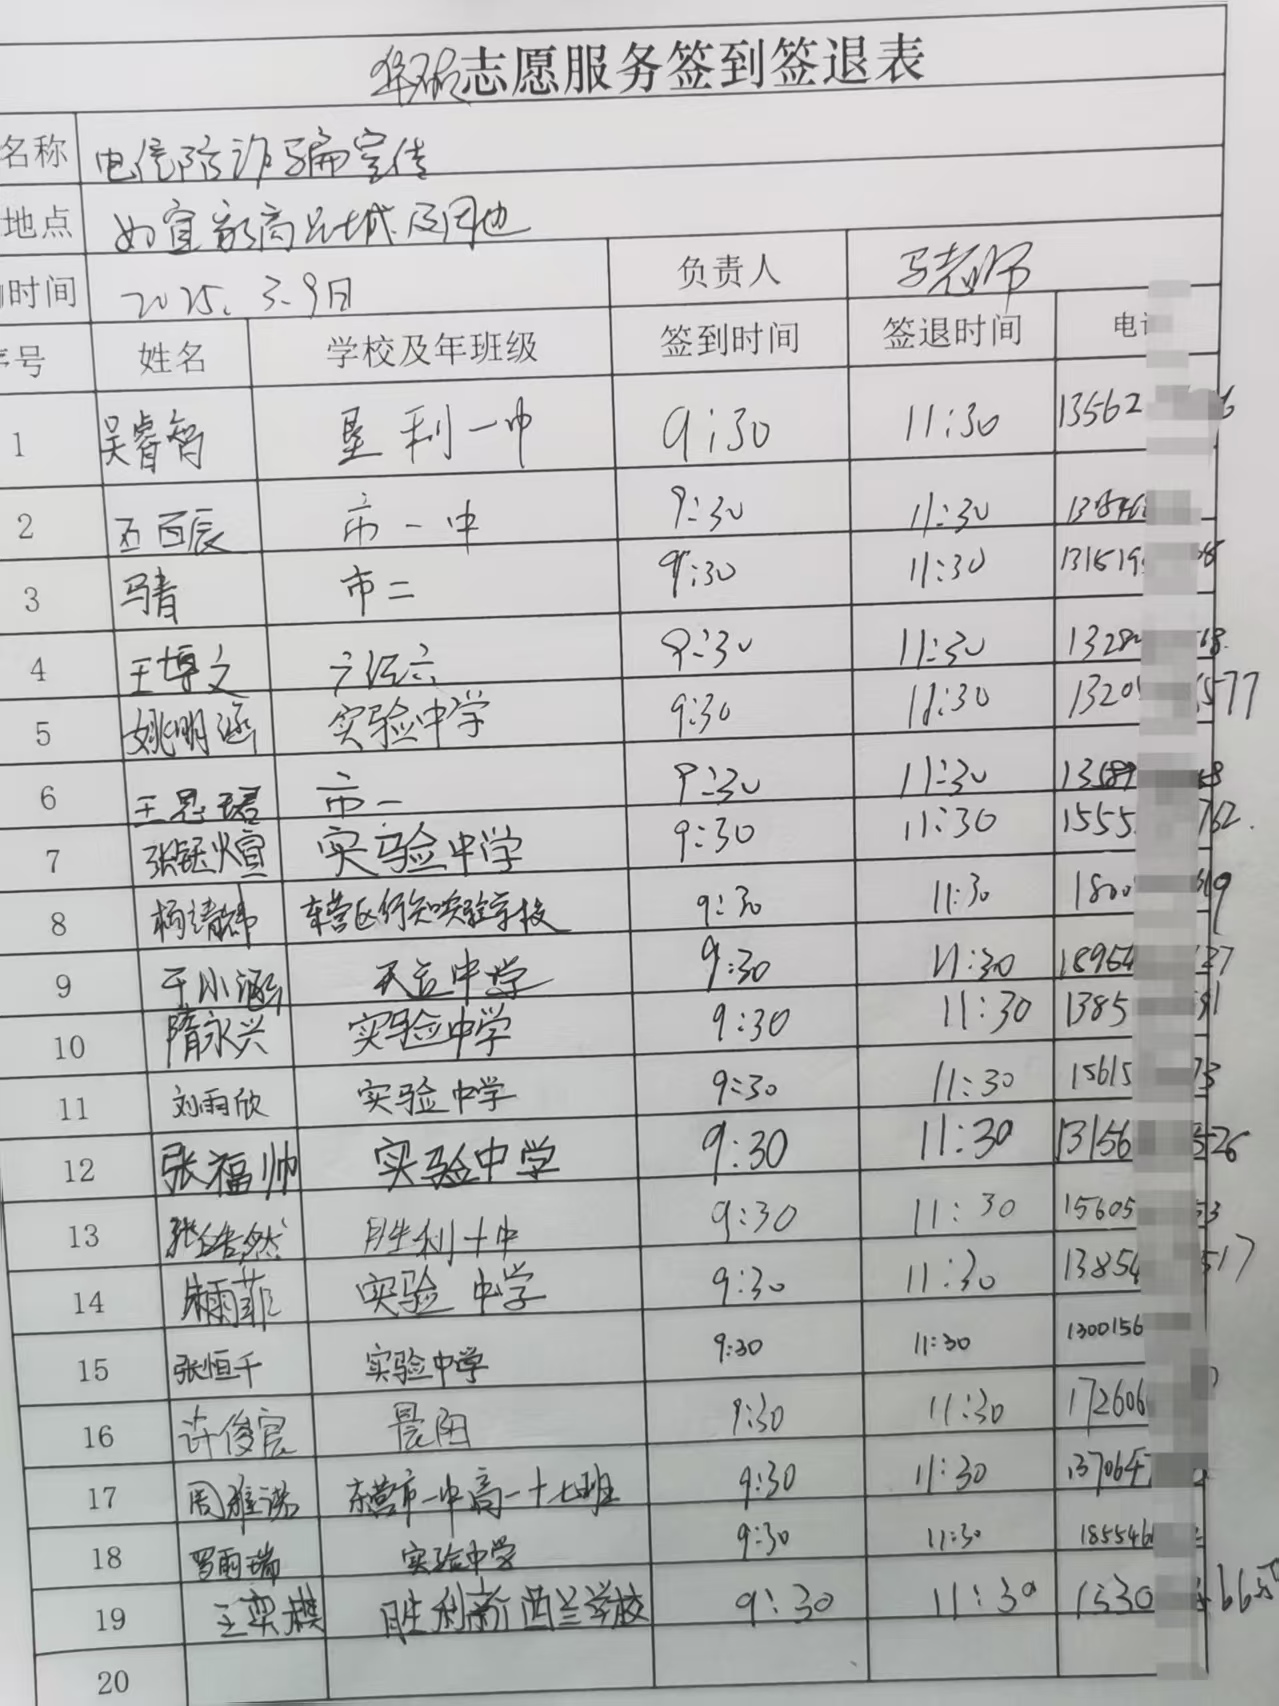 志愿服务签到签退表
名称 电信防诈骗宣传
地点 如宜家商品城及周边
时间 2025.3.9日 负责人 马老师
序号 姓名 学校及年班级 签到时间 签退时间 电话
1 吴睿智 垦利一中 9:30 11:30 13562 6
2 西辰 市一中 9:30 11:30
3 马青 市二 9:30 11:30 131519
4 王博文 9:30 11:30 1328 68
5 姚明涵 实验中学 9:30 11:30 1320 577
6 王思珺 市一 9:30 11:30 13589 8
7 张钰煊 实验中学 9:30 11:30 1555 762
8 杨靖 东营区行知实验学校 9:30 11:30 1800 9
9 于小涵 天立中学 9:30 11:30 18954 27
10 隋永兴 实验中学 9:30 11:30 1385 1
11 刘雨欣 实验中学 9:30 11:30 15615 3
12 张福帅 实验中学 9:30 11:30 13156 526
13 张皓然 胜利十中 9:30 11:30 15605 53
14 朱雨菲 实验中学 9:30 11:30 13854 517
15 张恒千 实验中学 9:30 11:30 1300156
16 许俊宸 晨阳 9:30 11:30 172606
17 周雅诺 东营市一中高一十七班 9:30 11:30 137064
18 罗雨瑞 实验中学 9:30 11:30 185546
19 王奕祺 胜利新西兰学校 9:30 11:30 1530 665
20